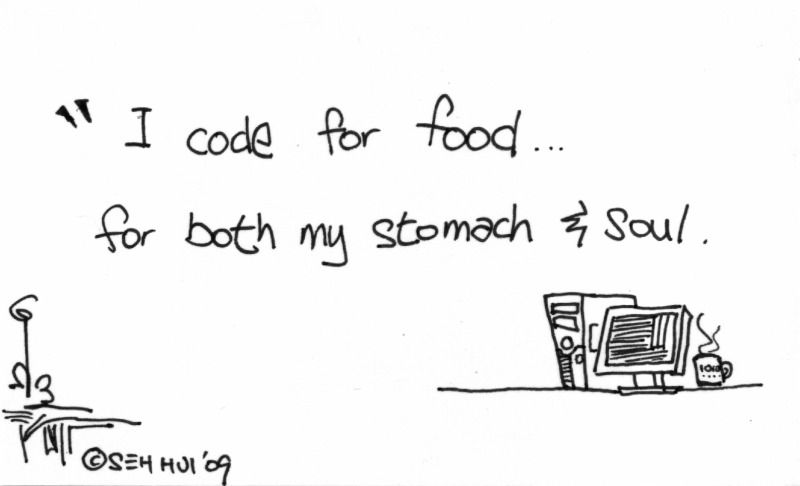 " I code for food...
for both my stomach & soul.
© SEH HUI '09